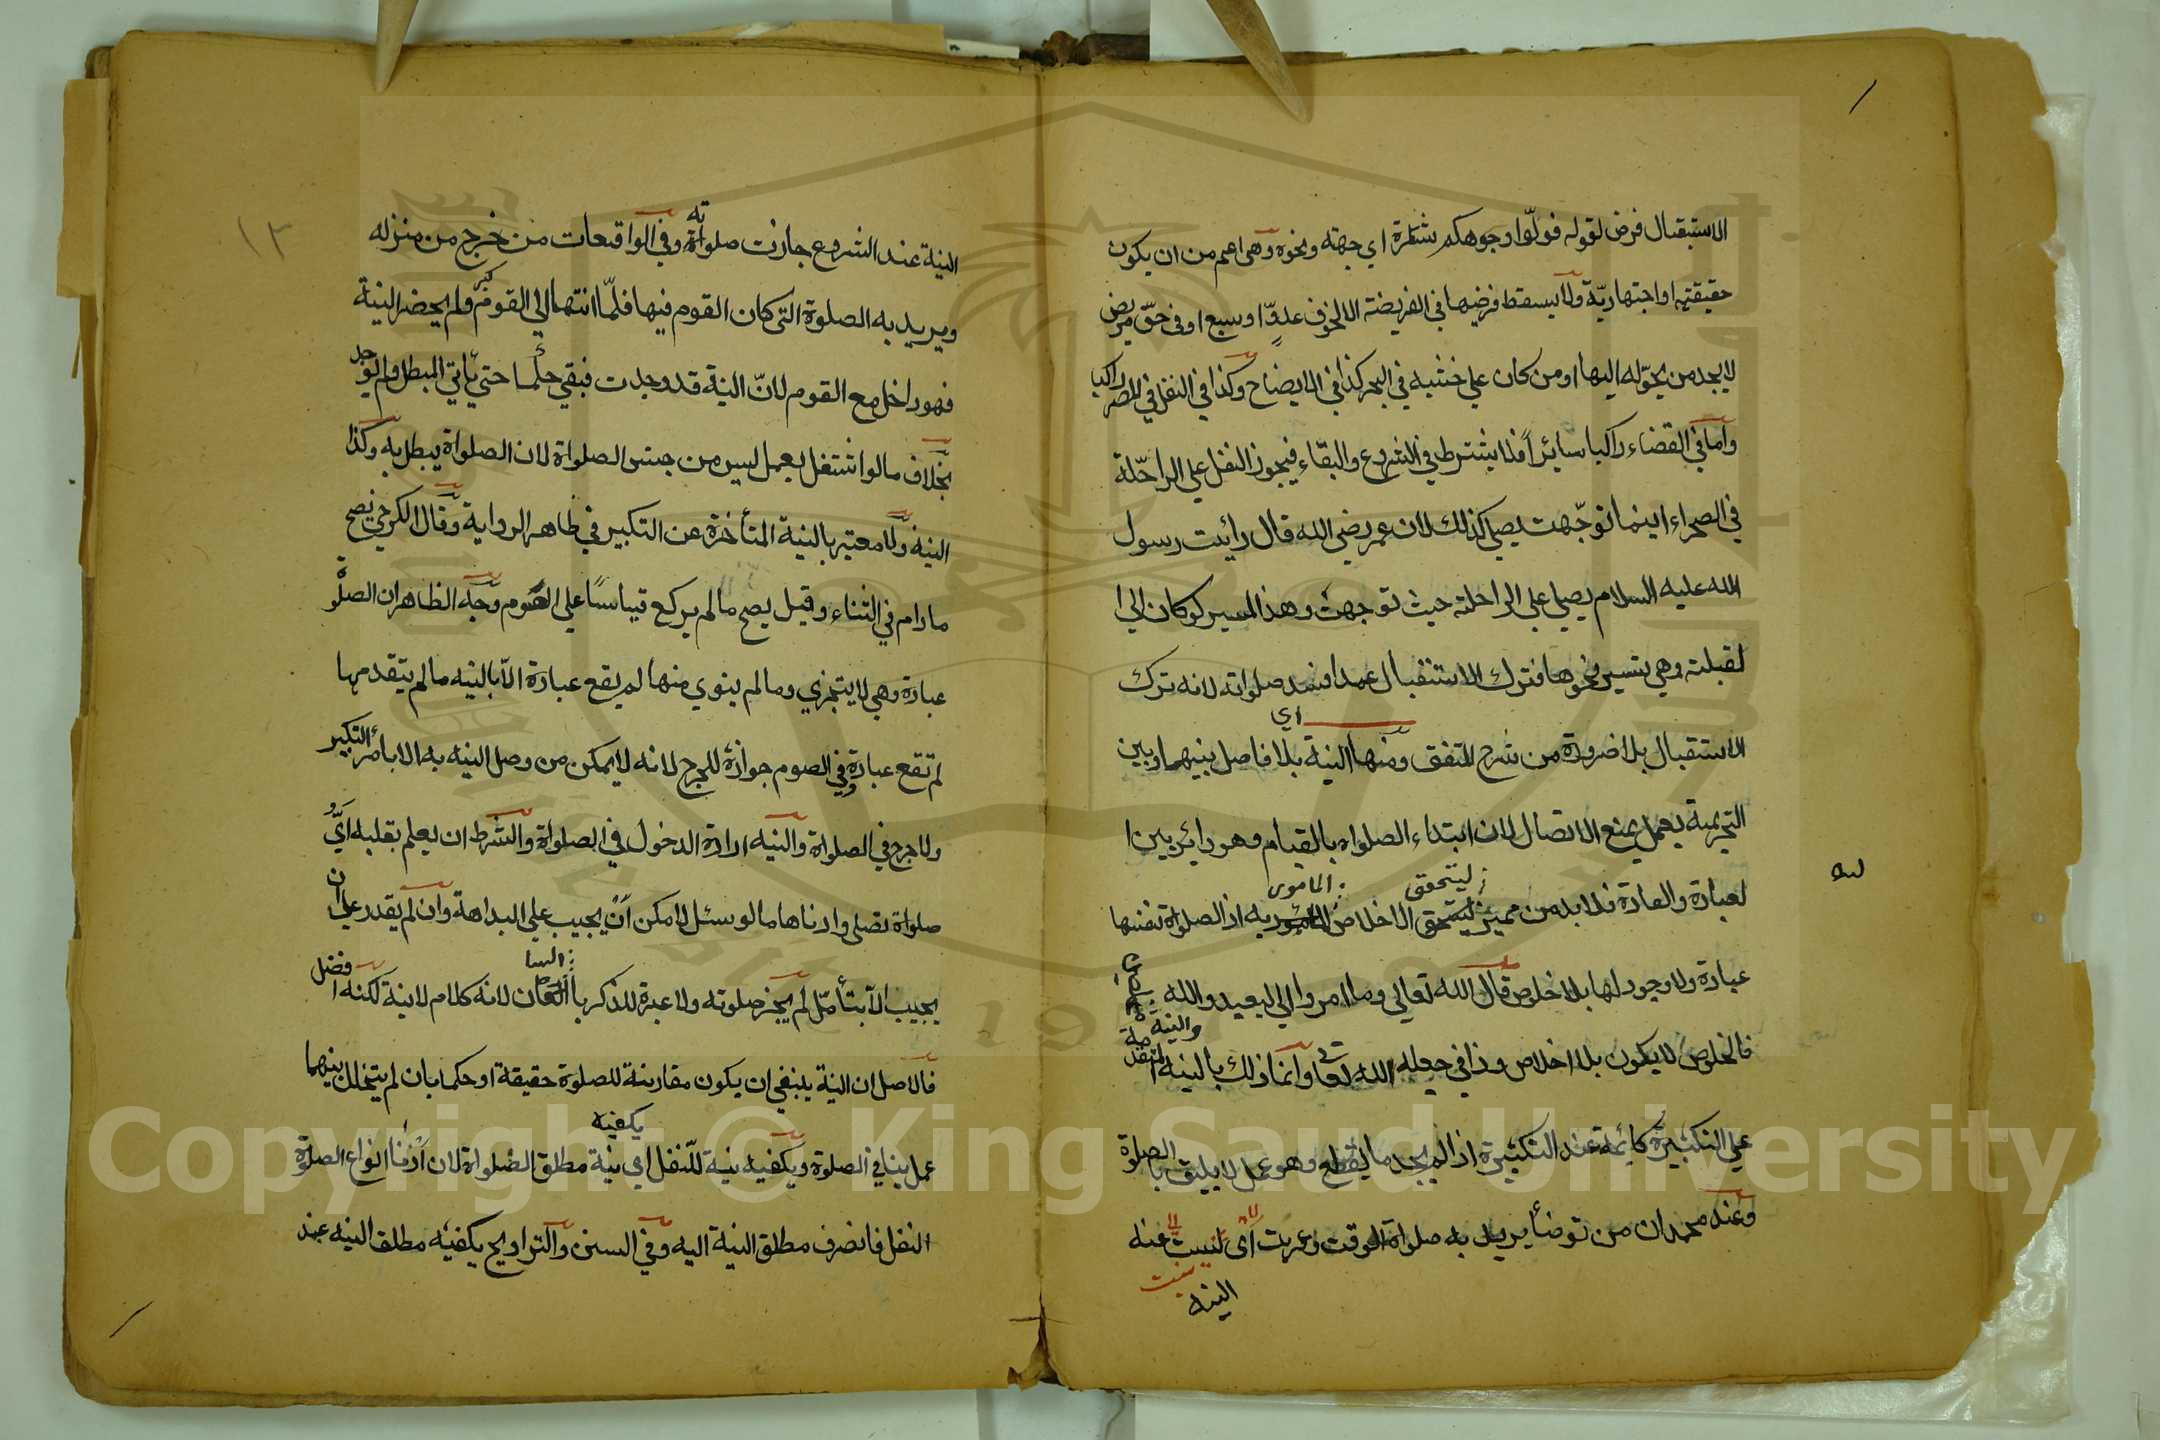 الاستبقبال فرض لقوله فولّوا وجوهكم شطره اي جهته ونحوه وهى اعم من ان يكون
حقيقتيه او اجتهاديّة ولا يسقط فرضيها في الفريضة الا لخوف عدوّ او سبع او في حقّ مريض
لا يجد من يحوّله اليها او من كان علي خشبه في البحر كذا في الايضاح وكذا في النفل في المصر راكبا
واما في القضاء راكبا سائراً فلا يشترط في الشروع والبقاء فيجوز النفل علي الراحلة
في الصحراء اينما توجّهت يصلي كذلك لان عمر رضي الله قال رائيت رسول
الله عليه السلام يصلي علي الراحلته حيث توجهت وهذا المسير كو كان الي ا
لقبلته وهي تسير نحوها فترك الاستقبال عمدا فسد صلواته لانه ترك
اي
الاستقبال بلا ضرورة من شرح المتفق ومنها النية بلا فاصل بينهما وبين
التحريمة بعمل يمنع الاتصال لان ابتداء الصلواه بالقيام وهو دائر بين ا
ليتحقق المامور
لعبادة والعادة فلا بد من مميز ليتحقق الاخلاص المامور به اذ الصلواة نفسها
عبادة ولا وجود لها بلا خلوص قال الله تعالي وما امروا الا ليعبدوا الله
والنية
فالخلوص لا يكون بلا اخلاص وذا في جعله الله تعا وانما ذلك بالنية المتقدمة
علي التكبيرة كائمة عند التكبيرة اذا لم يجد ما يقطع وهو عمل لا يليق بالصلوة
وعند محمد ان من توضأ يريد به صلواة الوقت وعربت اى ليست عنه
النيه
١٣
النية عند الشروع جازت صلواته وفي الواقعات من خرج من منزله
ويريد به الصلوة التي كان القوم فيها فلمّا انتها الي القوم كبر ولم يحضر النية
فهو داخل مع القوم لانّ النية قد وجدت فبقي حكما حتي يأتي المبطل ولم يوجد
بخلاف ما لو اشتغل بعمل ليس من جنس الصلواة لان الصلواة يبطل به وكذا
النيه ولا معتبر بالنية المتأخرة عن التكبير في ظاهر الرواية وقال الكرخي نصح
مادام في الثناء وقيل يصح ما لم يركع قياسًا علي الصوم وجه الظاهر ان الصلوة
عبادة وهي لا يتجزي وما لم ينوي منها لم يقع عبادة الا بالنيه ما لم يتقدمها
لم تقع عبادة وفي الصوم جوازه للحرج لانه لا يمكن من وصل النيه به الا بامر التكبير
ولا حرج في الصلواة والنيه ارادة الدخول في الصلواة والشرط ان يعلم بقلبه ايّ
صلواة تصلي وادناها ما لو سئل لامكن ان يجيب علي البداهة وان لم يقدر علي ان
اللسا
يجيب الا بتأمّل لم يجز صلوته ولا عبرة للذكر باللسان لانه كلام لا نية لكنه افضل
فالاصل ان النية ينبغي ان يكون مقارنة للصلوة حقيقة او حكما بان لم يتخلل بينهما
يكفيه
عمل ينافي الصلوة ويكفيه نية للنفل اي نية مطلق الصلواة لان ادنا انواع الصلوة
النفل فانصرف مطلق النية اليه وفي السنن والتراويح يكفيه مطلق النيه عند
Copyright © King Saud University